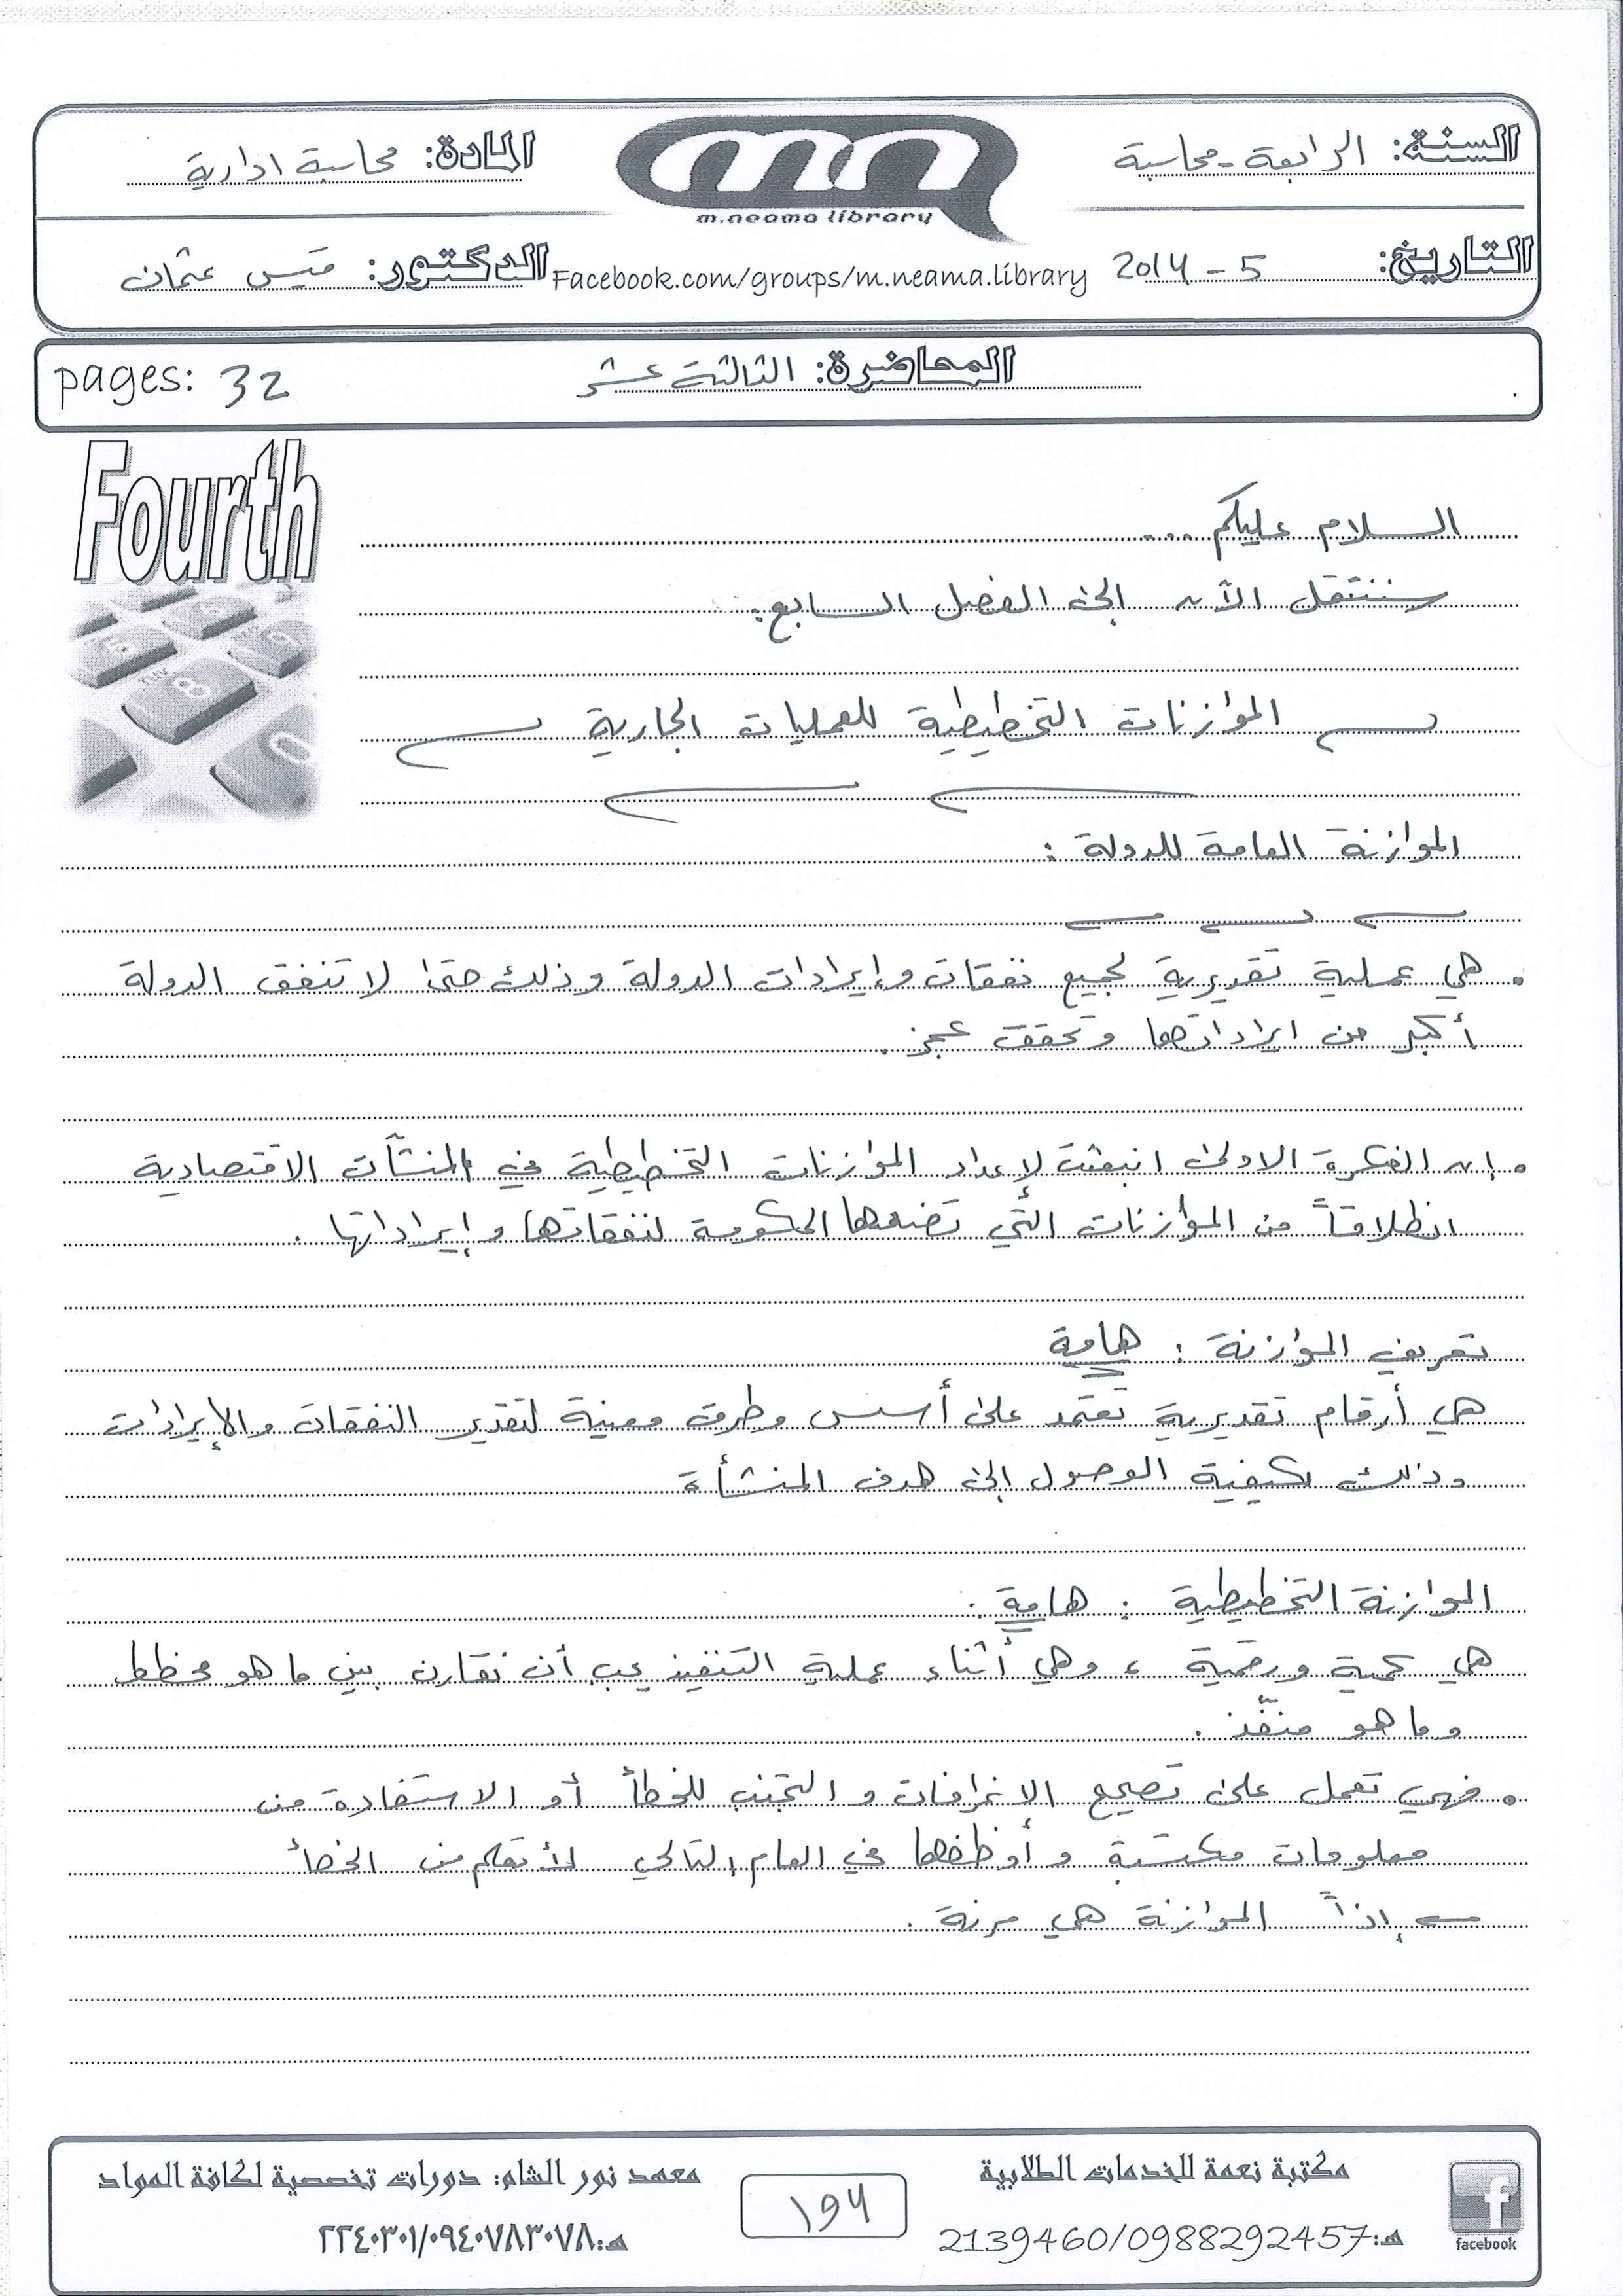 السنة: الرابعة - محاسبة
المادة: محاسبة ادارية
m.neama library
التاريخ: 5 - 2014
Facebook.com/groups/m.neama.library
الدكتور: قيس عثمان
المحاضرة: الثالثة عشر
pages: 32
Fourth
السلام عليكم ...
سننتقل الآن إلى الفصل السابع:
الموازنات التخطيطية للعمليات الجارية
الموازنة العامة للدولة :
• هي عملية تقديرية لجميع نفقات وإيرادات الدولة وذلك حتى لا تنفق الدولة
أكبر من ايراداتها وتحقق عجز.
• إن الفكرة الاولى انبعثت لإعداد الموازنات التخطيطية في المنشآت الاقتصادية
انطلاقاً من الموازنات التي تضعها الحكومة لنفقاتها وإيراداتها .
تعريف الموازنة : هامة
هي أرقام تقديرية تعتمد على أسس وطرق معينة لتقدير النفقات والإيرادات
وذلك بكيفية الوصول إلى هدف المنشأة
الموازنة التخطيطية : هامة :
هي كمية ورقمية ، وهي أثناء عملية التنفيذ يجب أن نقارن بين ما هو مخطط
وما هو منفّذ .
• فهي تعمل على تصحيح الانحرافات والتجنب للخطأ أو الاستفادة من
معلومات مكتسبة وأوظفها في العام التالي لأتعلم من الخطأ
إذاً الموازنة هي مرنة .
مكتبة نعمة للخدمات الطلابية
هـ:2139460/0988292457
194
معهد نور الشام: دورات تخصصية لكافة المواد
هـ:٢٢٤٠٣٠١/٠٩٤٠٧٨٣٠٧٨
facebook